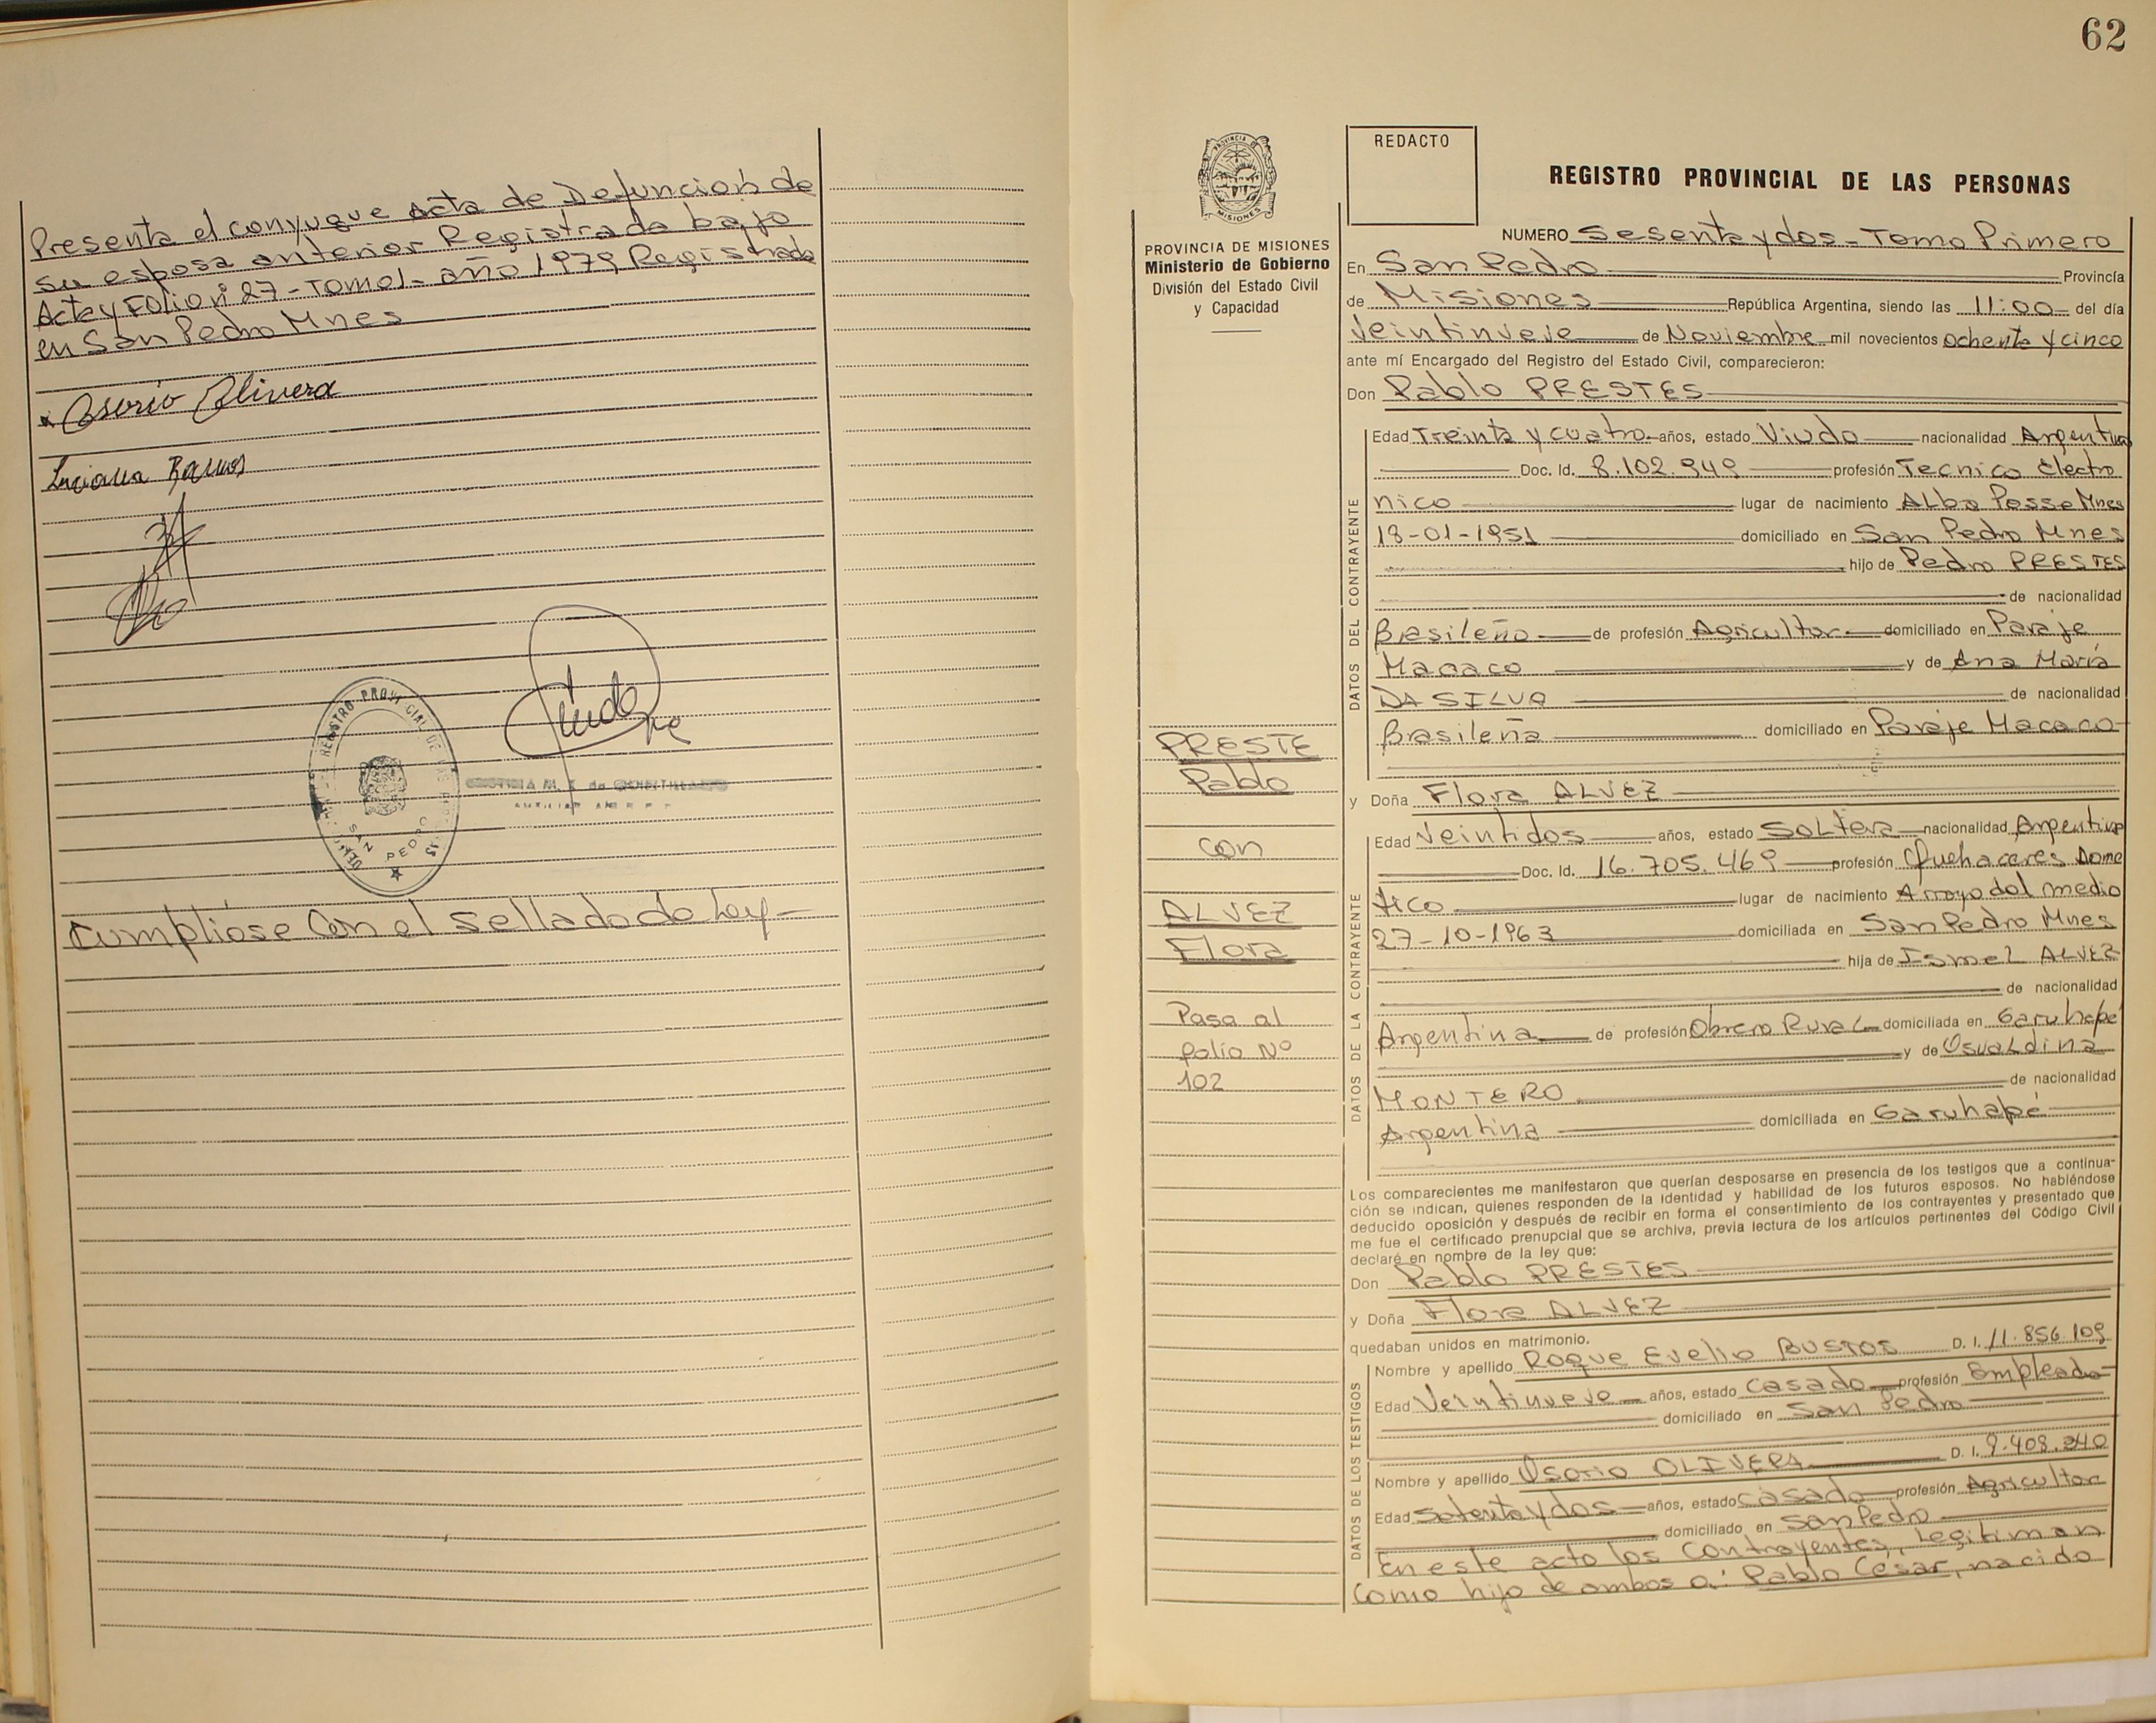 Presenta el conyugue Acta de Defunción de
su esposa anterior Registrada bajo
Acta y Folio nº 27 - Tomo 1 - año 1979 Registrada
en San Pedro Mnes
Osorio Olivera
Luciana Ramos
REGISTRO PROVINCIAL DE LAS
SAN PEDRO
Cumplióse Con el sellado de Ley -
62
PROVINCIA DE
MISIONES
PROVINCIA DE MISIONES
Ministerio de Gobierno
División del Estado Civil
y Capacidad
PRESTE
Pablo
con
ALVEZ
Flora
Pasa al
folio Nº
102
REDACTO
REGISTRO PROVINCIAL DE LAS PERSONAS
NUMERO Sesenta y dos - Tomo Primero
En San Pedro Provincia
de Misiones República Argentina, siendo las 11:00 del día
Veintinueve de Noviembre mil novecientos ochenta y cinco
ante mí Encargado del Registro del Estado Civil, comparecieron:
Don Pablo PRESTES
DATOS DEL CONTRAYENTE
Edad Treinta y cuatro años, estado Viudo nacionalidad Argentina
Doc. Id. 8.102.949 profesión Tecnico Electro
nico lugar de nacimiento Alba Posse Mnes
18-01-1951 domiciliado en San Pedro Mnes
hijo de Pedro PRESTES
de nacionalidad
Brasileño de profesión Agricultor domiciliado en Paraje
Macaco y de Ana María
DA SILVA de nacionalidad
Brasileña domiciliado en Paraje Macaco
y Doña Flora ALVEZ
DATOS DE LA CONTRAYENTE
Edad Veintidos años, estado Soltera nacionalidad Argentina
Doc. Id. 16.705.469 profesión Quehaceres Dome
tico lugar de nacimiento Arroyo del medio
27-10-1963 domiciliada en San Pedro Mnes
hija de Ismel ALVEZ
de nacionalidad
Argentina de profesión Obrero Rural domiciliada en Garuhapé
y de Osvaldina
MONTERO de nacionalidad
Argentina domiciliada en Garuhapé
Los comparecientes me manifestaron que querían desposarse en presencia de los testigos que a continua-
ción se indican, quienes responden de la identidad y habilidad de los futuros esposos. No habiéndose
deducido oposición y después de recibir en forma el consentimiento de los contrayentes y presentado que
me fue el certificado prenupcial que se archiva, previa lectura de los artículos pertinentes del Código Civil
declaré en nombre de la ley que:
Don Pablo PRESTES
y Doña Flora ALVEZ
quedaban unidos en matrimonio.
DATOS DE LOS TESTIGOS
Nombre y apellido Roque Evelio BUSTOS D. I. 11.856.109
Edad Veintinueve años, estado casado profesión Empleado
domiciliado en San Pedro
Nombre y apellido Osorio OLIVERA D. I. 9.408.240
Edad Setenta y dos años, estado casado profesión Agricultor
domiciliado en San Pedro
En este acto los Contrayentes, Legitiman
Como hijo de ambos a: Pablo César, nacido